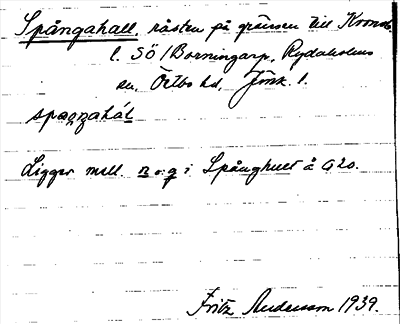 Spångahall, råsten på gränsen till Kronob.
l. SÖ / Borningarp, Rydaholms
sn, Östbo hd, Jönk. l.
spaŋŋahál
Ligger mell. n o. g i Spånghult å G20.
Fritz Andersson 1939.